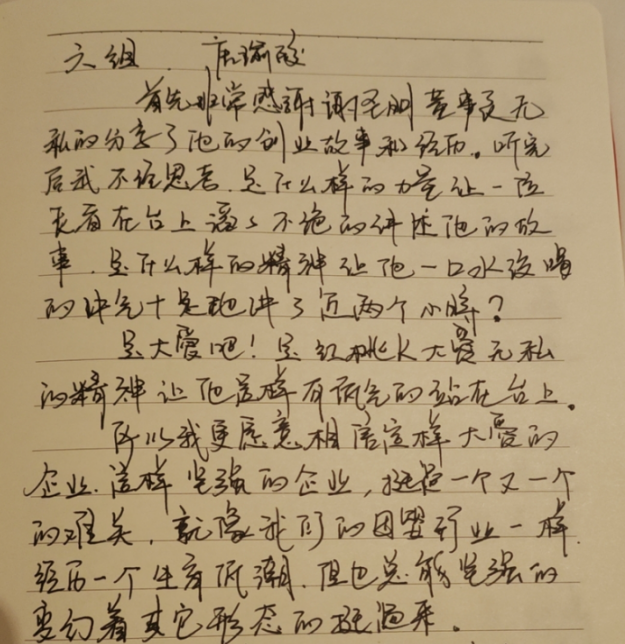 六组 . 唐瑜皎
首先非常感谢谢圣明董事长无
私的分享了他的创业故事和经历。听完
后我不经思考.是什么样的力量让一位
长者在台上滔滔不绝的讲述他的故
事.是什么样的精神让他一口水没喝
的
讲了近两个小时?
是大爱吧!是红桃K大爱无私
的精神让他这样有底气的站在台上.
所以我更愿意相信这样大爱的
企业.这样坚强的企业,挺过一个又一个
的难关,就像我们的
行业一样.
经历一个生育低潮.但也总能坚强的
变幻着其它形态的挺过来.